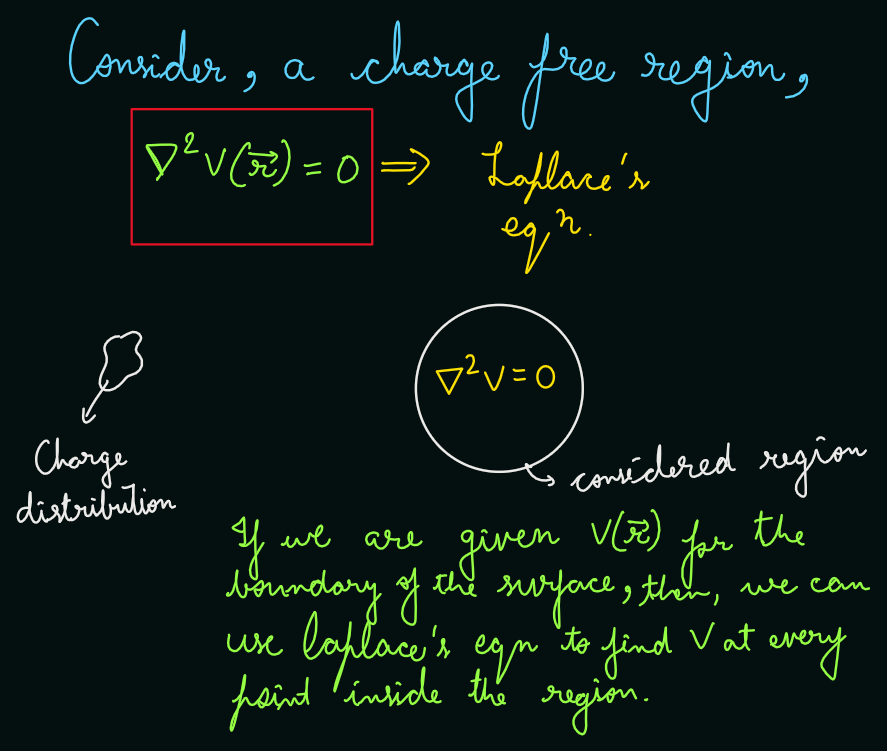 Consider, a charge free region,
∇²V(r⃗) = 0 ⇒ Laplace's
eqⁿ.
∇²V = 0
Charge
distribution
considered region
If we are given V(r⃗) for the
boundary of the surface, then, we can
use laplace's eqn to find V at every
point inside the region.